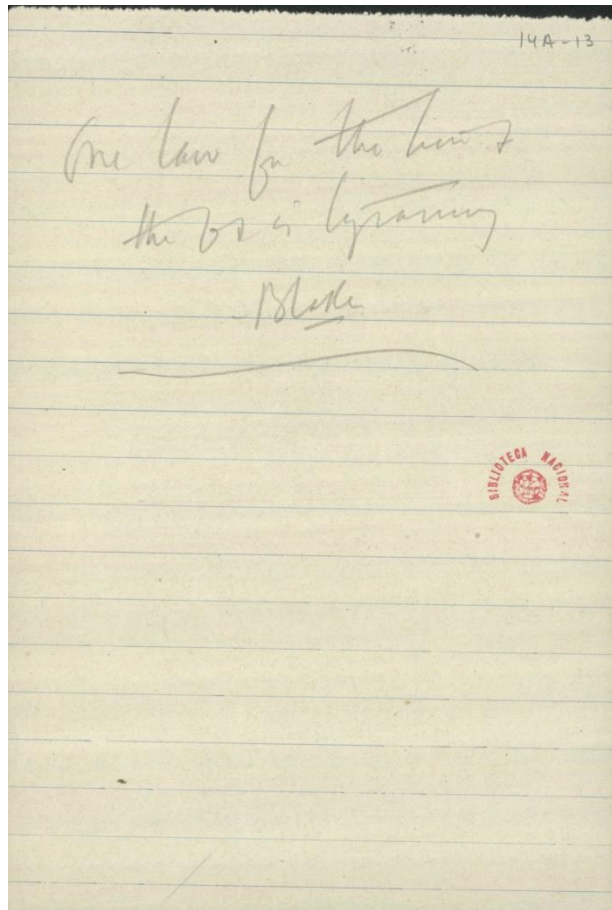 14A-13
One law for the lion &
the ox is tyranny
-Blake
BIBLIOTECA NACIONAL